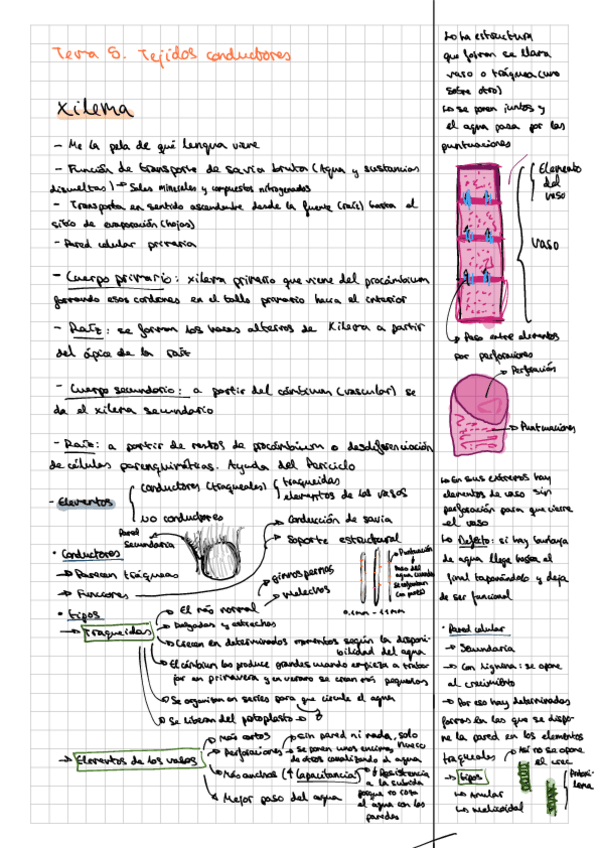 Tema 8. Tejidos conductores
Xilema
- Me la pela de qué lengua viene
- Función de transporte de savia bruta (Agua y sustancias
disueltas) → Sales minerales y compuestos nitrogenados
- Transporta en sentido ascendente desde la fuente (raíz) hasta el
sitio de evaporación (hojas)
- Pared celular primaria
- Cuerpo primario: xilema primario que viene del procámbium
formando esos cordones en el tallo primario hacia el interior
- Raíz: se forman los haces alternos de Xilema a partir
del ápice de la raíz
- Cuerpo secundario: a partir del cámbium (vascular) se
da el xilema secundario
- Raíz: a partir de restos de procámbium o desdiferenciación
de células parenquimáticas. Ayuda del Periciclo
- Elementos
conductores (traqueales)
traqueidas
elementos de los vasos
no conductores
Pared
secundaria
• Conductores
→ Parecen tráqueas
→ Funciones
→ Conducción de savia
→ Soporte estructural
→ Puntuación
Paso del
agua cuando
se
con
0.1mm - 11mm
• tipos
→ Traqueidas
→ El más normal
→ ginnospermas
→ Helechos
→ Delgadas y estrechas
→ Crecen en determinados momentos según la disponi-
bilidad del agua
→ El cámbium las produce grandes cuando empieza a
por
primavera y en verano se crean más pequeñas
→ Se organizan en series para que circule el agua
→ Se liberan del protoplasto →
→ Elementos de los vasos
→ más cortos
→ Perforaciones
→ sin pared ni nada, solo hueco
→ Se ponen unos encima
de otros canalizando el agua
→ Más anchos (↑ Capacitancia)
→ Resistencia
a la subida
porque no roza
el agua con las
paredes
→ Mejor paso del agua
↳ La estructura
que forman se llama
vaso o tráquea (uno
sobre otro)
↳ se ponen juntos y
el agua pasa por las
puntuaciones
Elemento
del
vaso
Vaso
→ Paso entre elementos
por perforaciones
→ Perforación
→ Puntuaciones
↳ En sus extremos hay
elementos de vaso sin
perforación para que cierre
el vaso
↳ Defecto: si hay burbuja
de agua llega hasta el
final taponándolo y deja
de ser funcional
• Pared celular
→ Secundaria
→ Con lignina: se opone
al crecimiento
→ Por eso hay determinadas
formas en las que se dispo-
ne la pared en los elementos
traqueales
→ Así no se opone
al crec.
→ tipos
↳ Anular
↳ Helicoidal